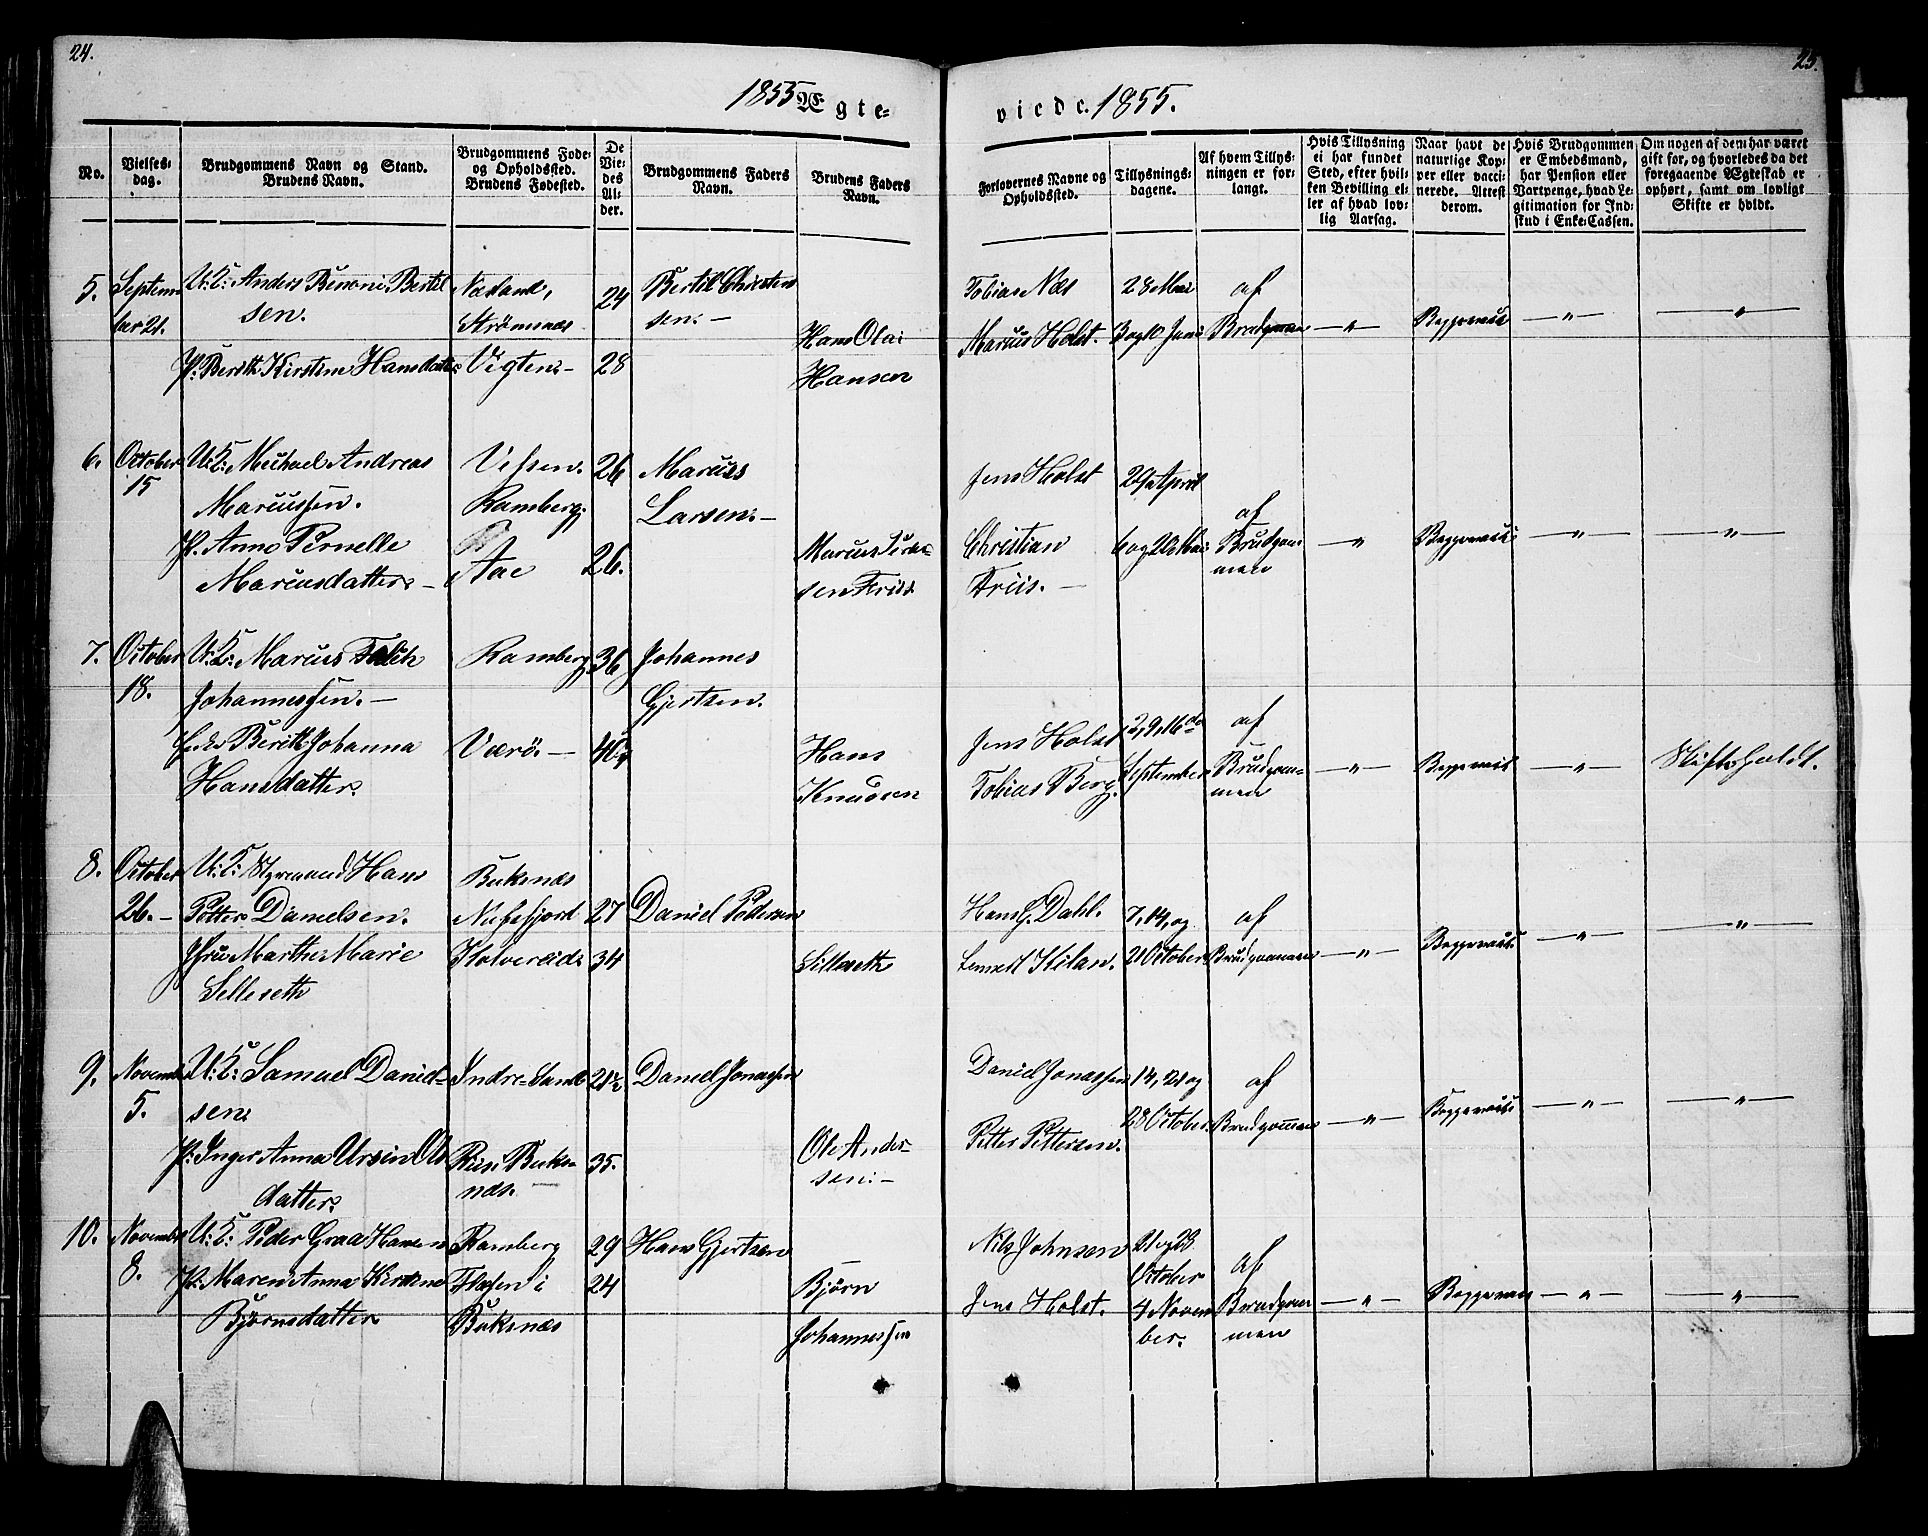 24.
25.
1855 Ægte-
viede. 1855.
No.
Vielses-
dag.
Brudgommens Navn og Stand.
Brudens Navn.
Brudgommens Føde-
og Opholdssted.
Brudens Fødested.
De
Vie-
des
Al-
der.
Brudgommens Faders
Navn.
Brudens Faders
Navn.
Forlovernes Navne og
Opholdssted.
Tillysnings-
dagene.
Af hvem Tillys-
ningen er for-
langt.
Hvis Tillysning
ei har fundet
Sted, efter hvil-
ken Bevilling el-
ler af hvad lov-
lig Aarsag.
Naar havt de
naturlige Kop-
per eller vacci-
nerede. Attest
derom.
Hvis Brudgommen
er Embedsmand,
har Pension eller
Vartpenge, hvad Le-
gitimation for Ind-
skud i Enke-Cassen.
Om nogen af dem har været
gift før, og hvorledes da det
foregaaende Ægteskab er
ophørt, samt om lovligt
Skifte er holdt.
5. Septem-
ber 21.
U: K: Anders Benoni Bertil
sen.
P: Berith Kirstine Hansdatter
Strømsnæs
Vigten -
24
28
Bertil Christen
sen. -
Hans Olai
Hansen
Tobias Næs
Marcus Holst.
28 Mai
3 og 10 Juni
af
Brudgommen
— " —
— " —
— " —
6. October
15
U: K: Michael Andreas
Marcussen.
P. Anne Pernelle
Marcusdatter. -
Vefsen.
Ramberg.
Aae
26
26.
Marcus
Larsen. -
Marcus
sen Friis
Jens Holst
Christian
Friis. -
29 April
6 og 20 Mai
af
Brudgom-
men
— " —
— " —
— " —
7. October
18.
U: K: Marcus Falch
Johannessen. -
Berith Johanna
Hansdatter.
Ramberg
Værø. -
36
Johannes
Gjertsen.
Hans
Knudsen
Jens Holst
Tobias Berg.
2, 9, 16de
September
af
Brudgom-
men
— " —
— " —
Skifte holdt.
8. October
26. -
U: K: Styrmand Hans
Petter Danielsen.
Marthe Marie
Selleseth
Buksnæs
Nufsfjord
27
34
Daniel Pedersen
Silleseth
Hans G. Dahl.
7, 14, og
21 October
af
Brudgommen
— " —
— " —
— " —
9. Novemb
5.
U: K: Samuel Daniel-
sen.
P: Inger Anna Ursin Ols
datter.
Indre-Sand
Buks-
næs.
35.
Daniel Jonassen
Ole Ander-
sen. -
Daniel Jonassen
Petter Pettersen.
14, 21 og
28 October.
af
Brudgommen
— " —
— " —
— " —
10. Novemb
8.
U: K: Peder Graa Hansen
P: Maren Anna Kirstine
Bjørnsdatter
Ramberg
i
Buksnæs
29
24
Hans Gjertsen
Bjørn
Johannessen
Nils Johnsen
Jens Holst.
21 og 28
October
4 Novem
ber.
af
Brudgom
men
— " —
— " —
— " —